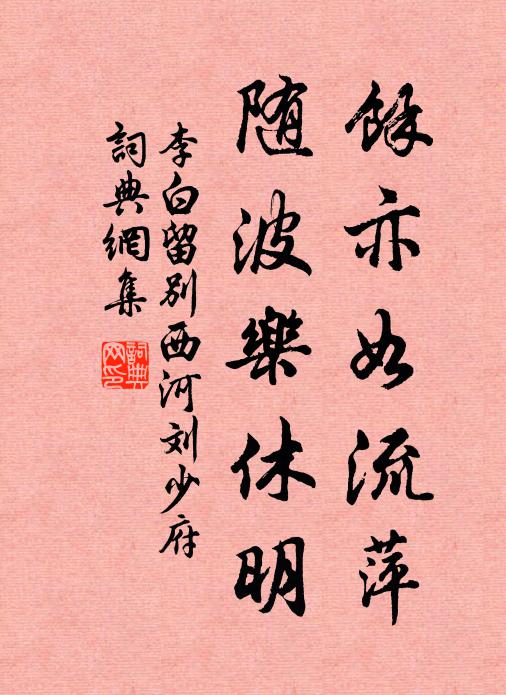 餘亦如流萍
随波樂休明
李白留别西河刘少府
詞典網集
詞典網印